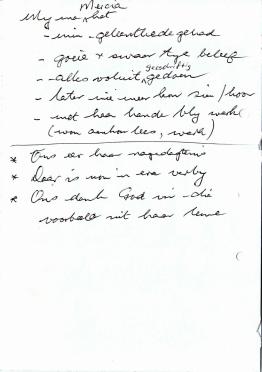 Mercia
My ma het
- min - geleenthede gehad
- goeie + swaar tye beleef
- alles voluit geesdriftig gedoen
- later nie meer kon sien / hoor
- met haar hande bly werk
(
* Ons eer haar nagedagtenis
* Daar is nou 'n era verby
* Ons dank God vir die
voorbeeld uit haar lewe